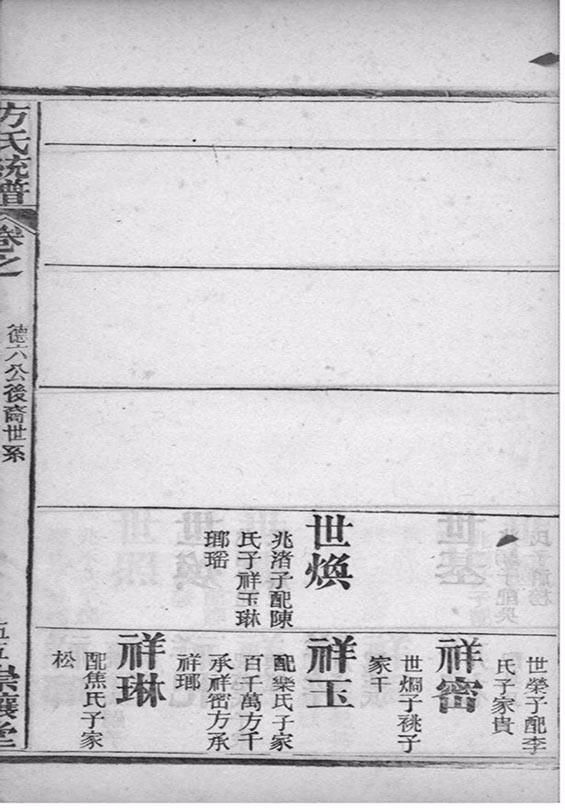 世煥
兆渚子配陳
氏子祥玉琳
瑯瑶
世榮子配李
氏子家貴
祥密
世烱子祧子
家千
祥玉
配欒氏子家
百千萬方千
承祥密方承
祥瑯
祥琳
配焦氏子家
松
方氏統譜
卷之
德六公後裔世系
五五
崇讓堂